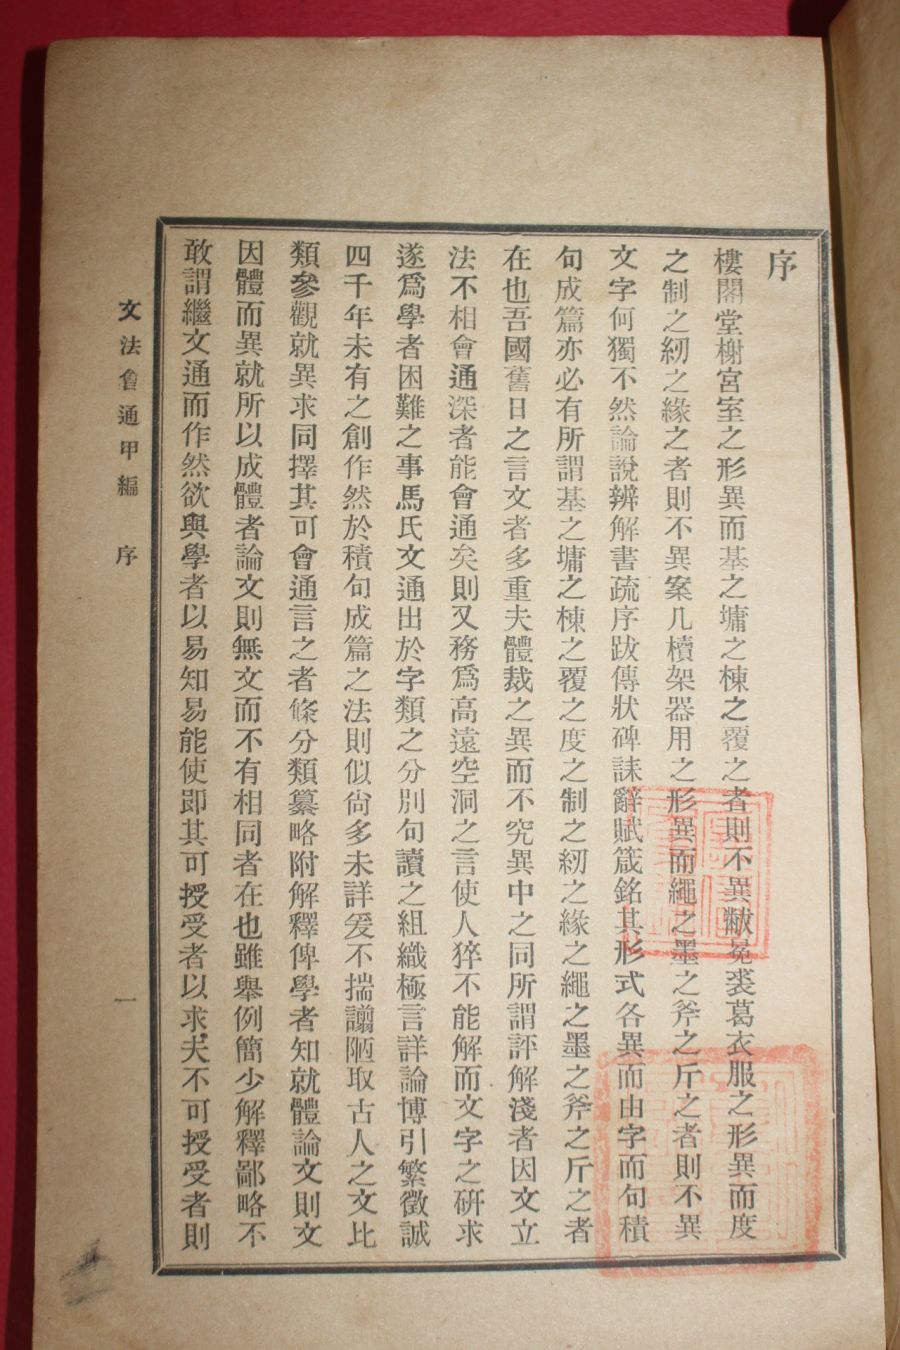 序
樓閣堂榭宮室之形異而基之墉之棟之覆之者則不異黻冕裘葛衣服之形異而度
之制之紉之緣之者則不異案几櫝架器用之形異而繩之墨之斧之斤之者則不異
文字何獨不然論說辨解書疏序跋傳狀碑誄辭賦箴銘其形式各異而由字而句積
句成篇亦必有所謂基之墉之棟之覆之度之制之紉之緣之繩之墨之斧之斤之者
在也吾國舊日之言文者多重夫體裁之異而不究異中之同所謂評解淺者因文立
法不相會通深者能會通矣則又務爲高遠空洞之言使人猝不能解而文字之硏求
遂爲學者困難之事馬氏文通出於字類之分別句讀之組織極言詳論博引繁徵誠
四千年未有之創作然於積句成篇之法則似尙多未詳爰不揣謭陋取古人之文比
類參觀就異求同擇其可會通言之者條分類纂略附解釋俾學者知就體論文則文
因體而異就所以成體者論文則無文而不有相同者在也雖舉例簡少解釋鄙略不
敢謂繼文通而作然欲與學者以易知易能使卽其可授受者以求夫不可授受者則
文法會通甲編 序
一